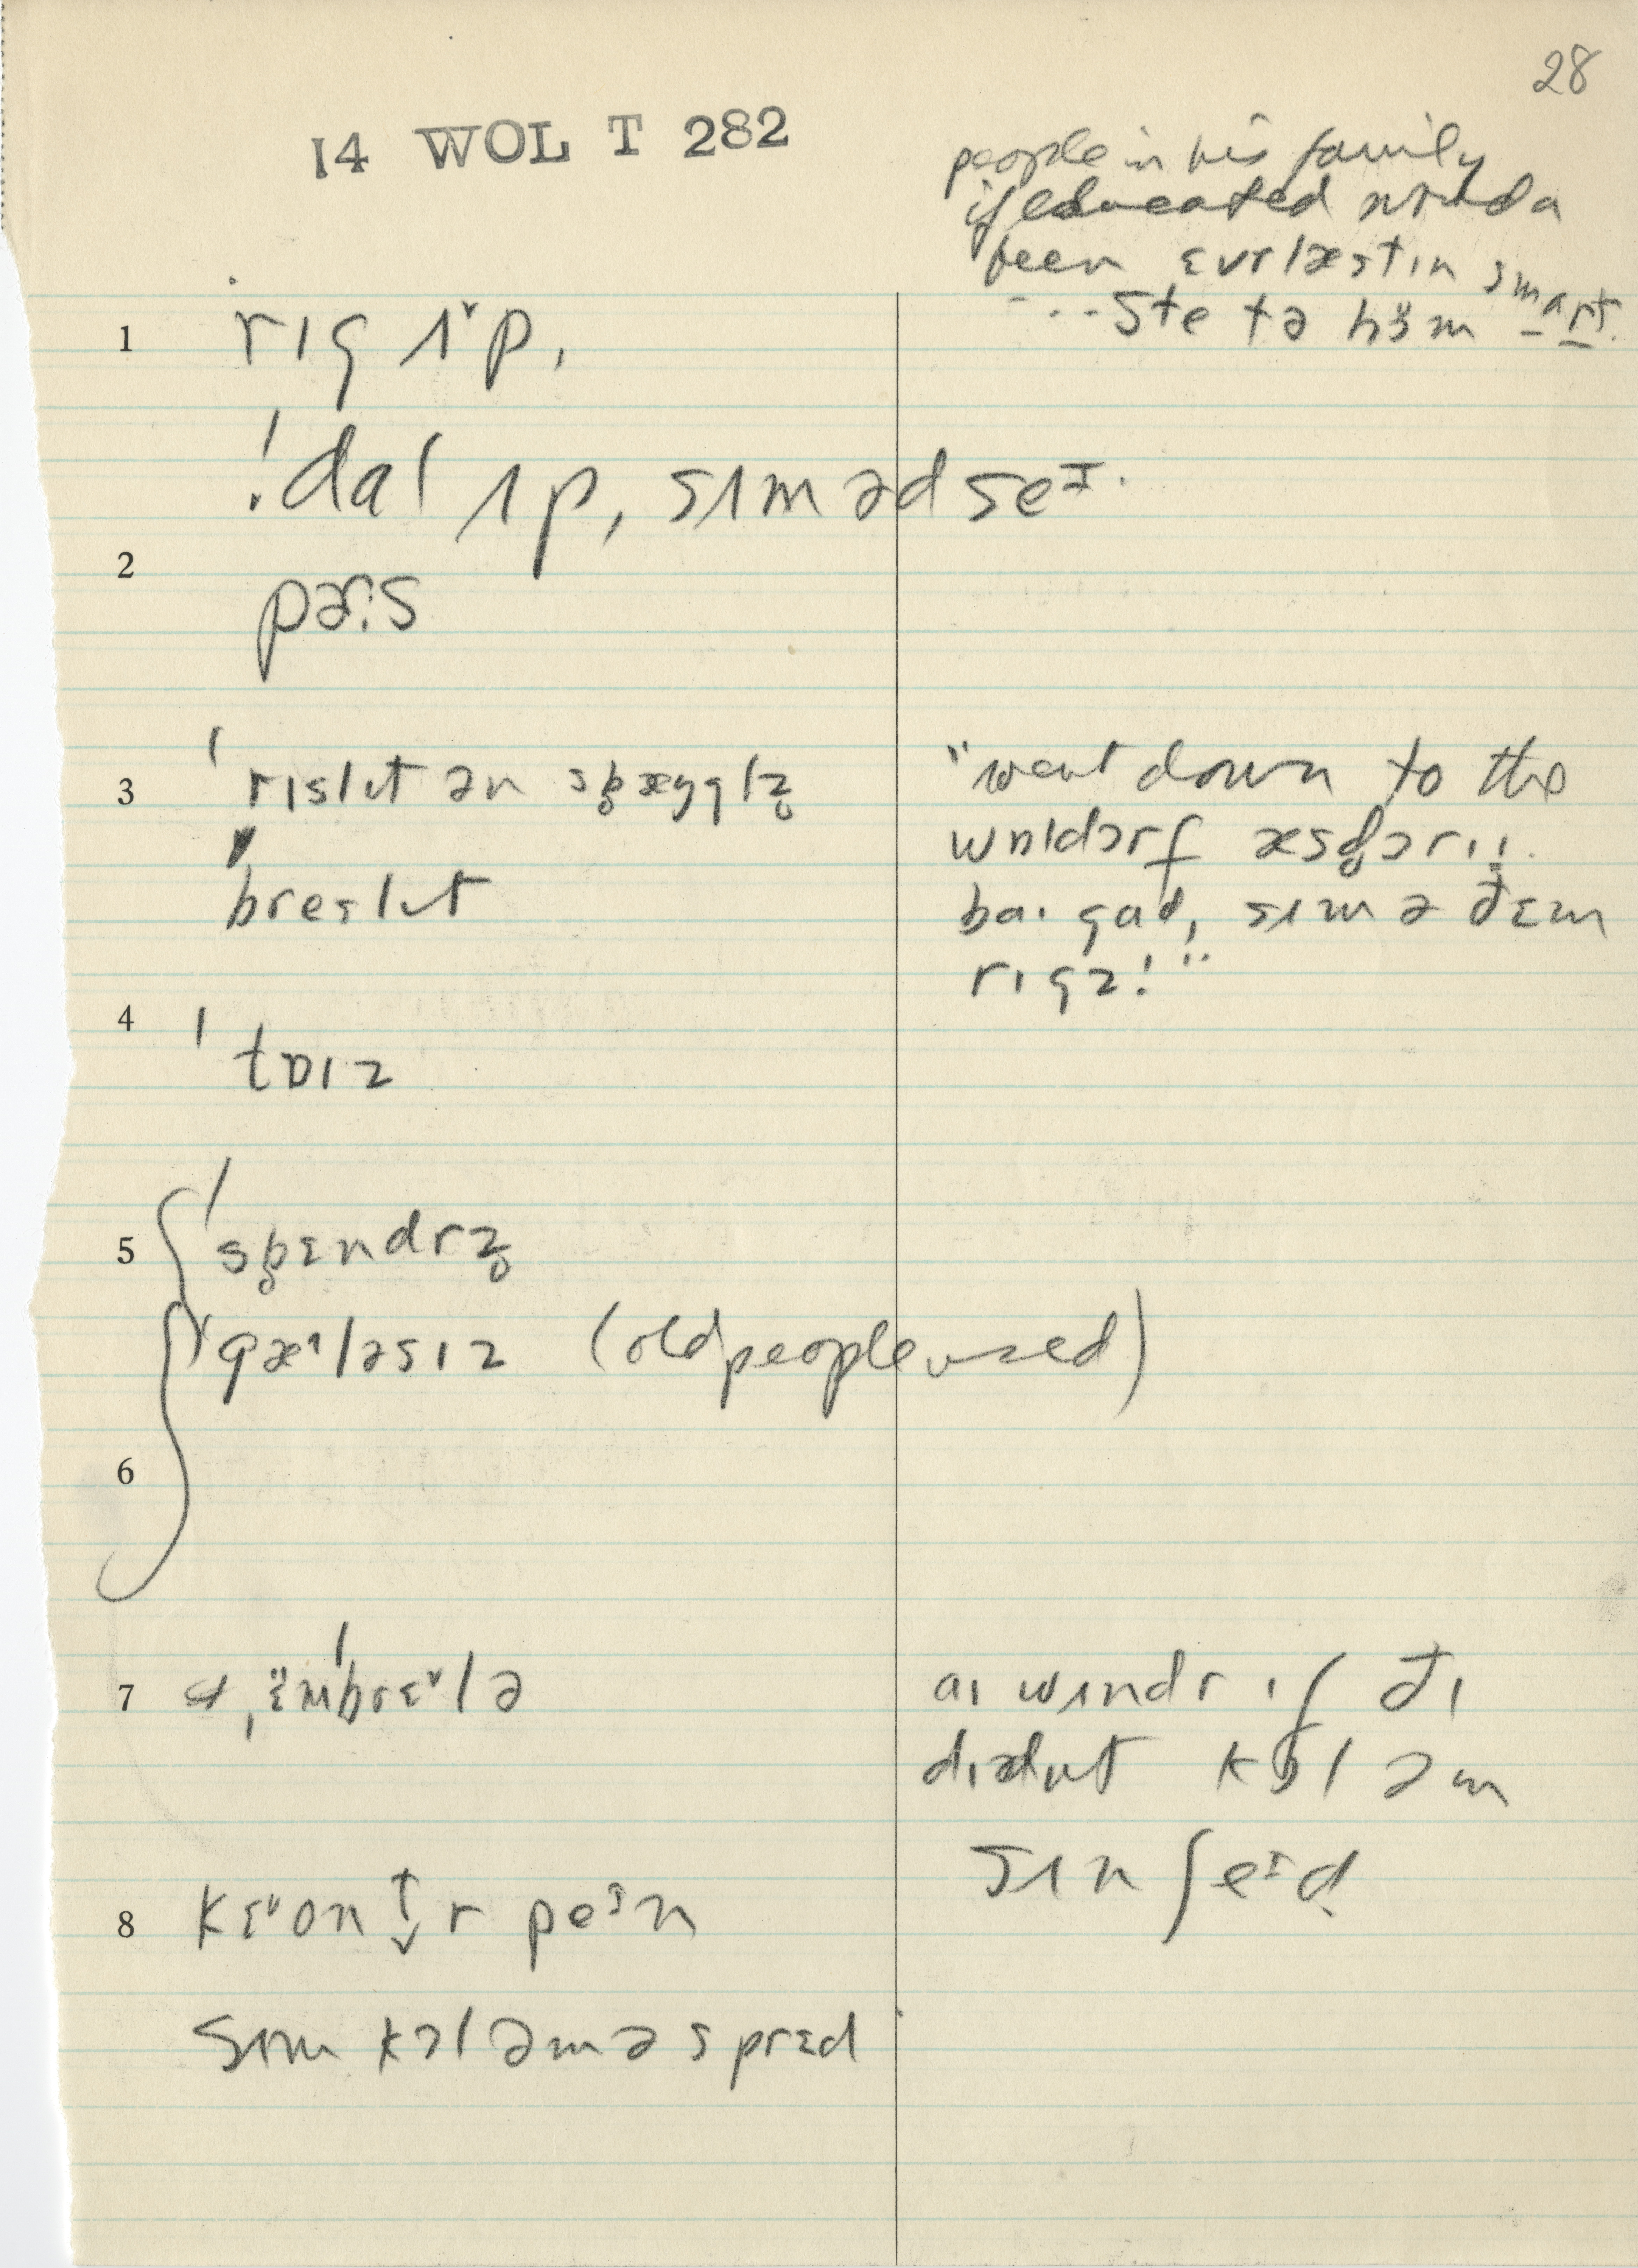 28
14 WOL T 282
people in his family
if educated would a
been ɛvrlæstɪn smart
...Ste tə hɜ̈m
1 rɪg ʌ˅p,
ˈdal ʌp, sʌm əd seɪ.
2
pər:s
3 ˈrɪslɪt ən sb̥æŋglz̥
breslɪt
"went down to the
wɒldɔrf æsd̥ɔrɪ;
ba. gad, sʌm ə ðɛm
rɪgz!"
4 ˈtɒɪz
5 ˈsb̥ɛndrz̥
ˈgæ˄ləsɪz (old people used)
6
7 ˌʌ̈mˈbrɛ˅lə
aɪ wʌndr ɪf ðɪ
dɪdnt kɒl əm
sʌn ʃeɪd
8 kɛ˅on↕r peɪn
Sʌm kɔl əm ə sprɛd